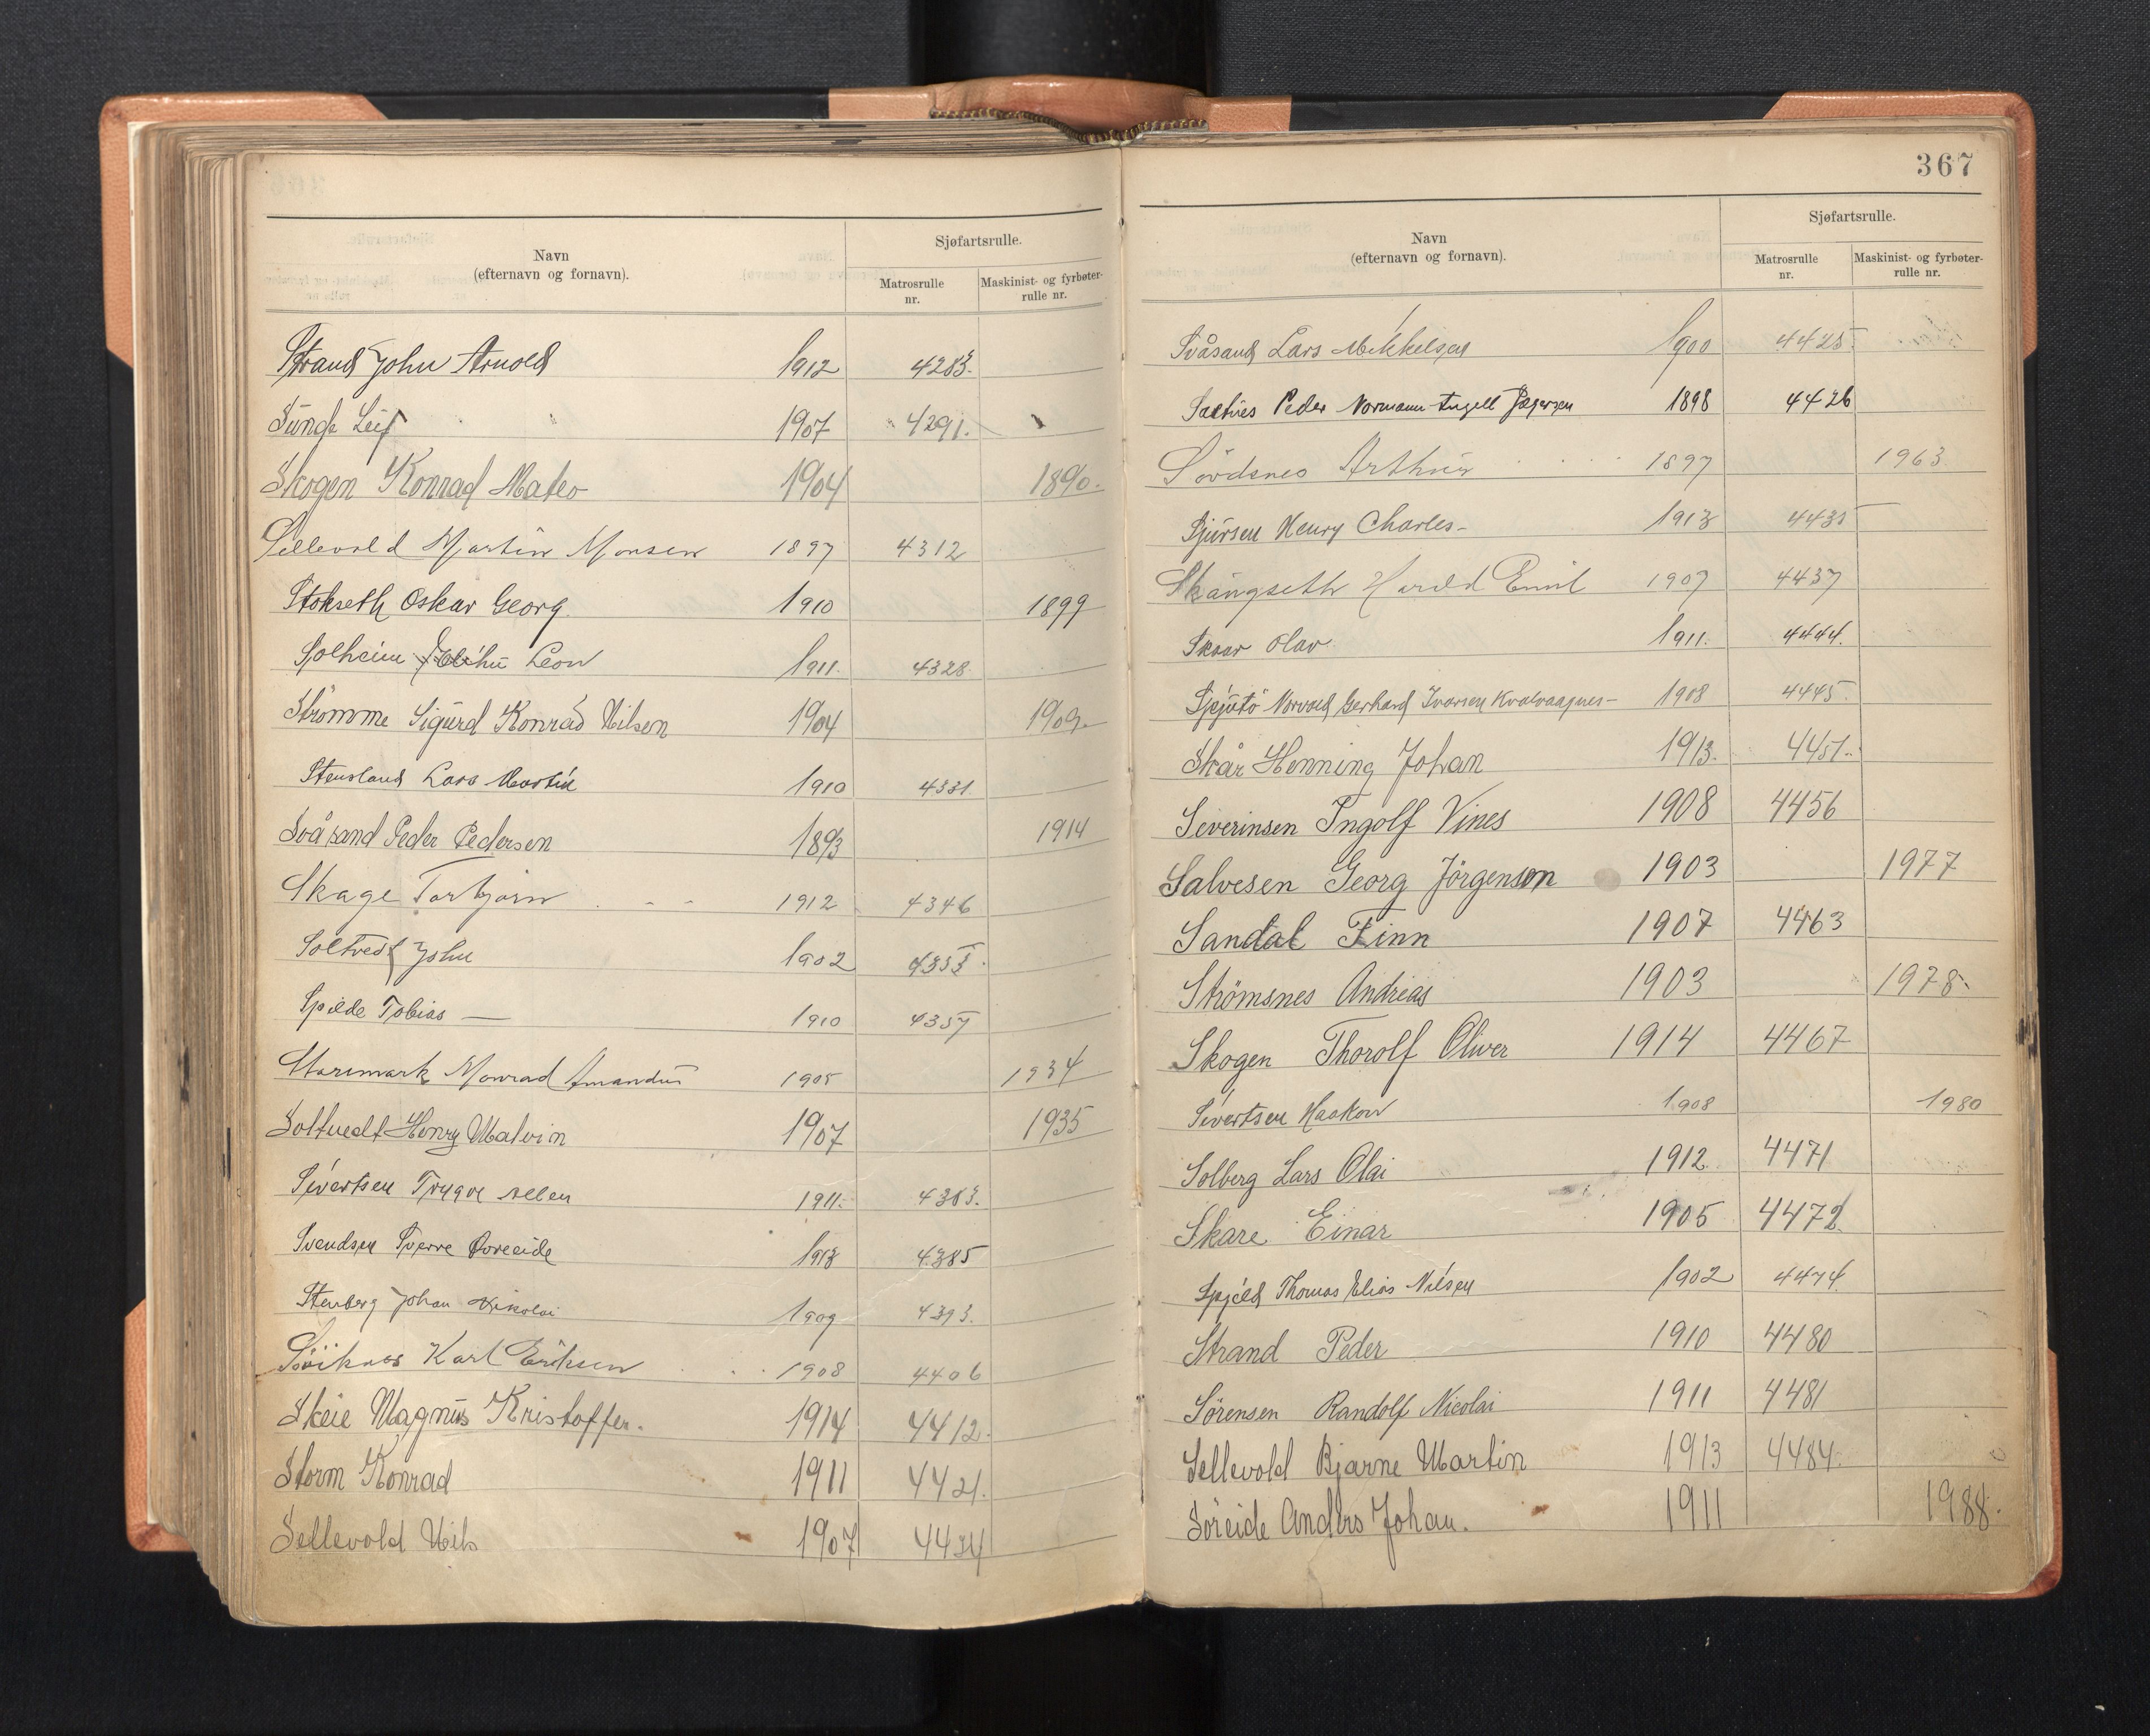 Navn
(efternavn og fornavn).
Sjøfartsrulle.
Matrosrulle
nr.
Maskinist- og fyrbøter-
rulle nr.
Strand John Arnold 1912 4283.
Sunde Leif 1907 4291.
Skogen Konrad Mateo 1904 1890.
Sellevold Martin Monsen 1897 4312
Stokseth Oskar Georg. 1910 1899
Solheim Leon 1911. 4328
Strömme Sigurd Konrad Nilsen 1904 1909.
Stensland Lars Martin 1910 4331
Svåsand Peder Pedersen 1893 1914
Skage Torbjörn 1912 4346
Soltvedt John 1902
Spilde Tobias — 1910 4357
Monrad Amandus 1905 1934
Soltvedt Henry Malvin 1907 1935
Sivertsen Trygve 1911. 4383.
Svendsen Sverre Øvreeide 1913 4385
Stenberg Johan Nikolai 1909 4393.
Karl Eriksen 1908 4406
Skeie Magnus Kristoffer. 1914 4412.
Storm Konrad 1911 4421.
Sellevold Nils 1907 4424
367
Navn
(efternavn og fornavn).
Sjøfartsrulle.
Matrosrulle
nr.
Maskinist- og fyrbøter-
rulle nr.
Svåsand Lars Mikkelsen 1900 4425
Peder Normann 1898 4426
Arthur 1897 1963
Sjursen Henry Charles- 1913 4435
Harald Emil 1907 4437
Skaar Olav 1911. 4444.
Norvald Gerhard Ivarsen Kvalvaagnes- 1908 4445.
Skår Henning Johan 1913. 4451.
Severinsen Ingolf Vines 1908 4456
Salvesen Georg Jörgenson 1903 1977
Sandal Finn 1907 4463
Strömsnes Andreas 1903 1978.
Skogen Thorolf Oliver 1914 4467
Sivertsen Haakon 1908 1980
Solberg Lars Olai 1912 4471
Skare Einar 1905 4472
Spjeld Thomas Elias Nilsen 1902 4474.
Strand Peder 1910 4480
Sørensen Randolf Nicolai 1911 4481
Sellevold Bjarne Martin 1913 4484.
Söreide Anders Johan. 1911 1988.